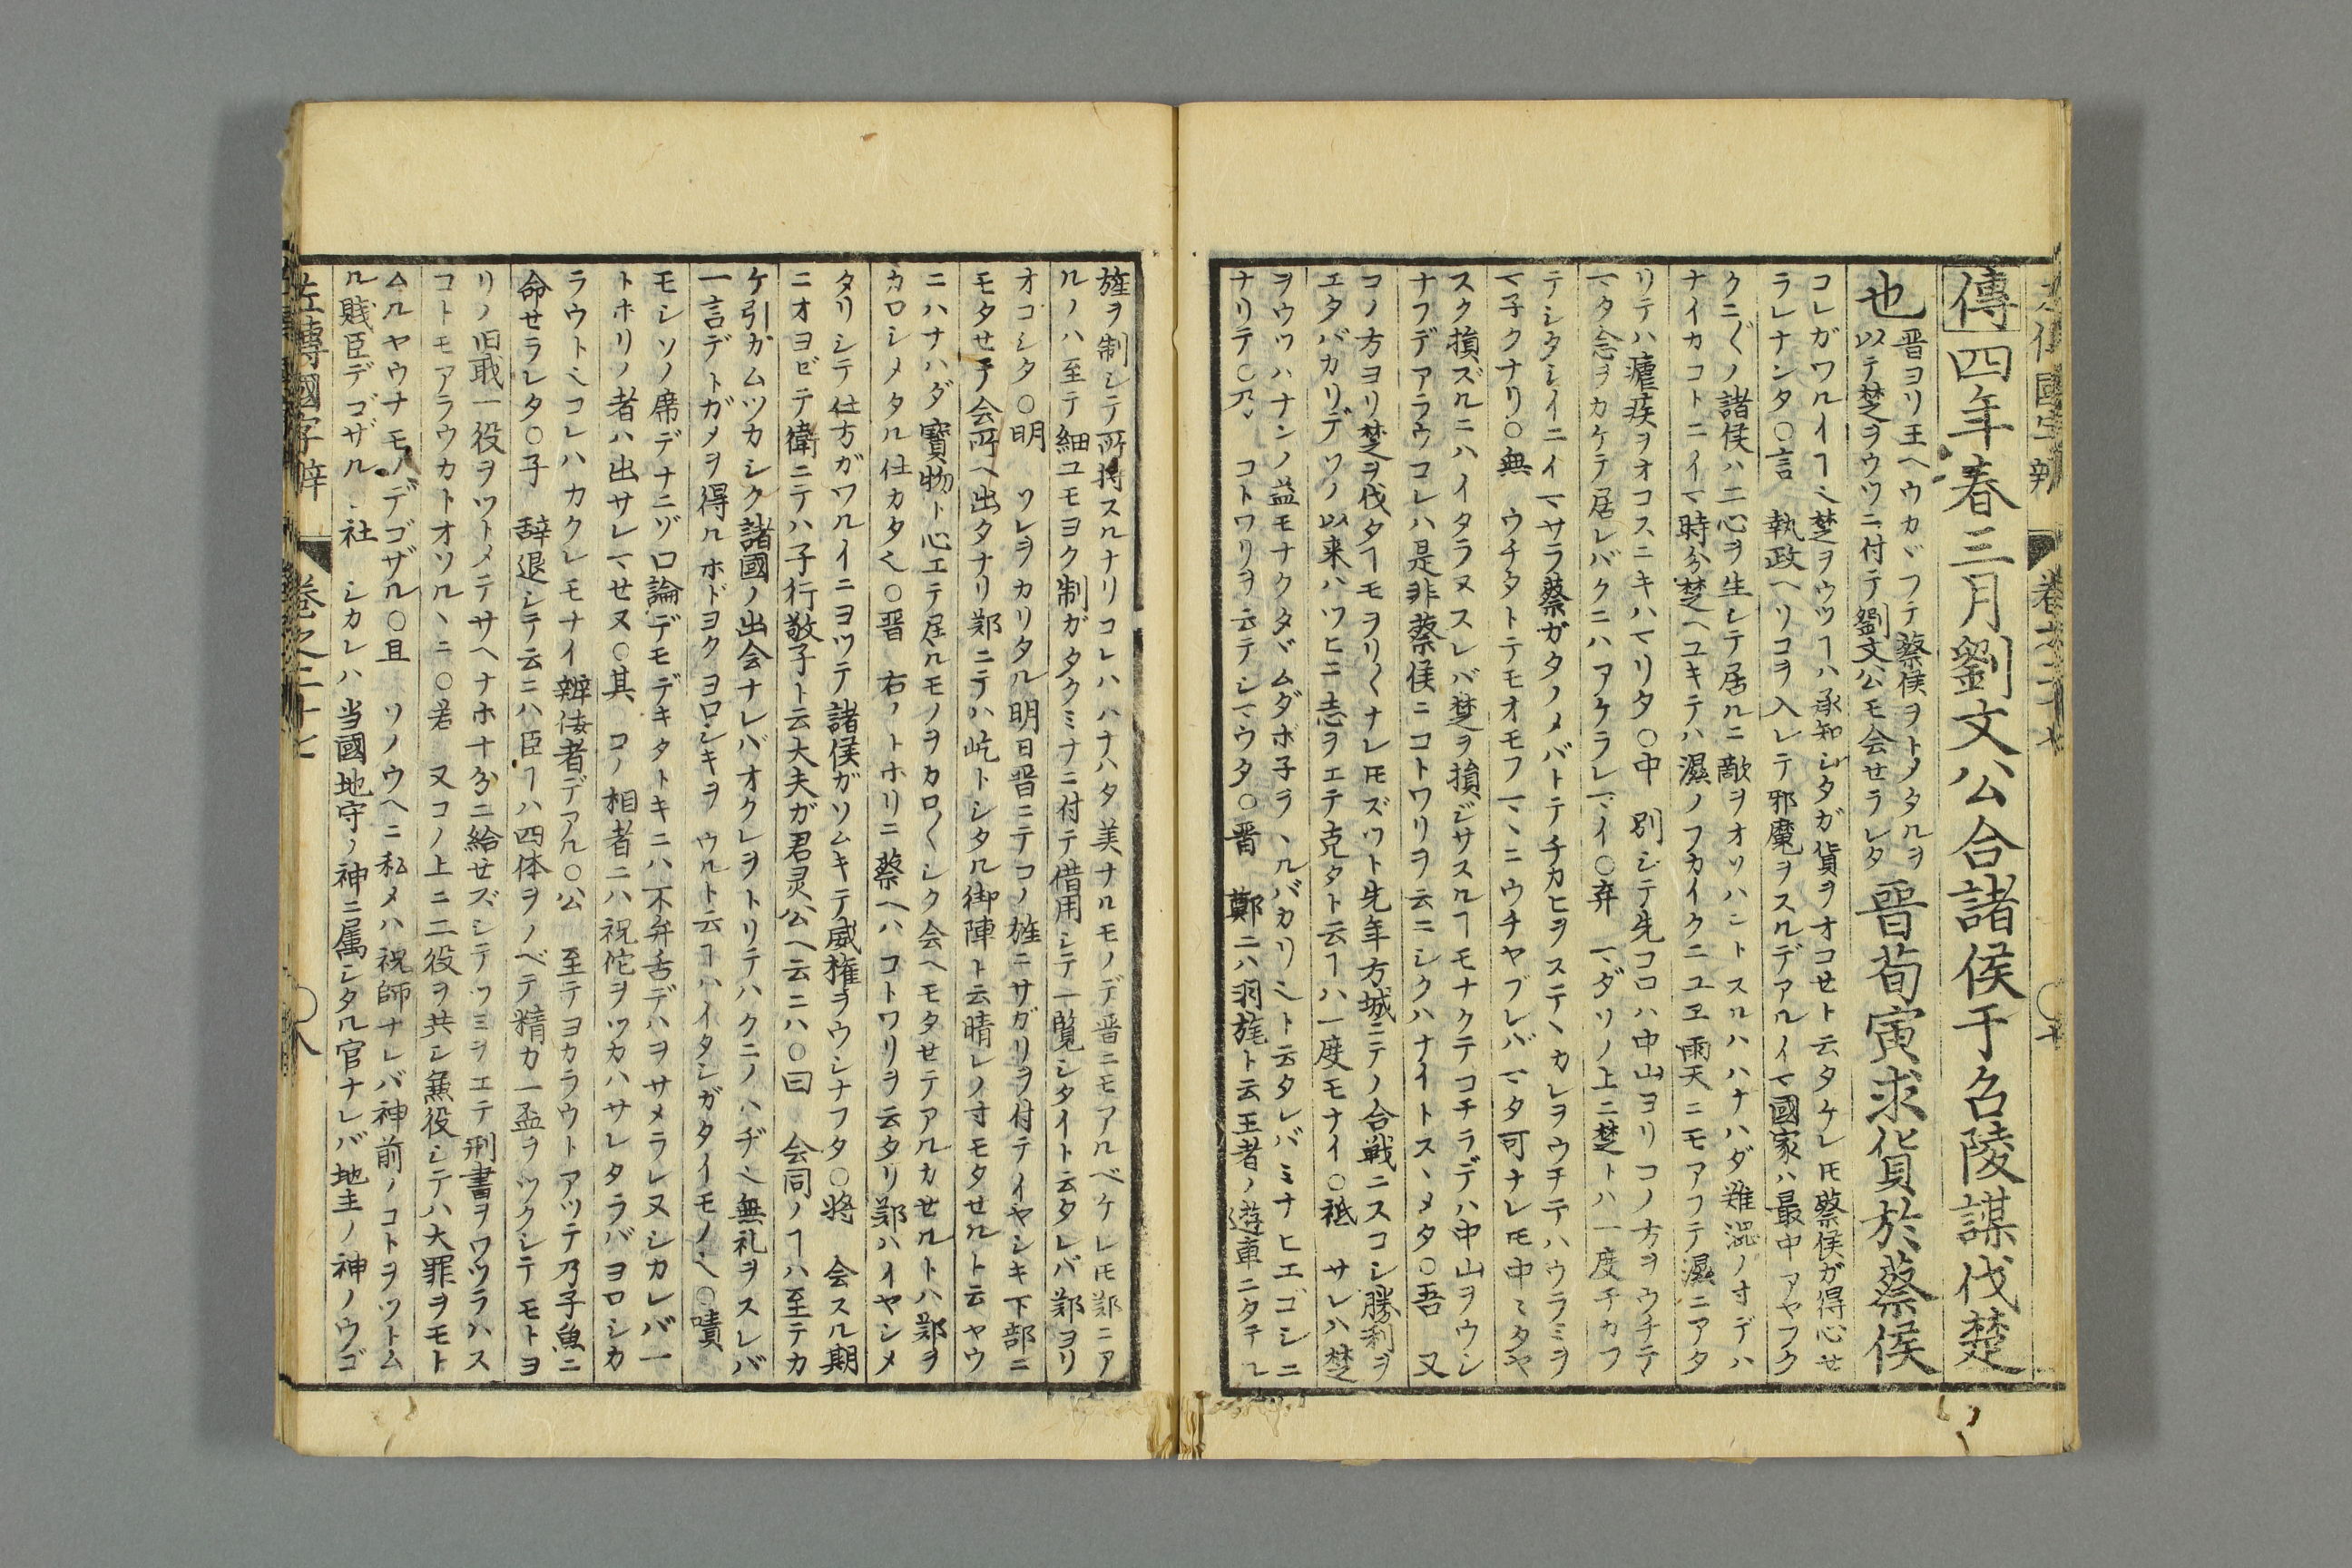 傳四年春三月劉文公合諸侯于召陵謀伐楚
也 晋ヨリ王ヘウカヾフテ蔡侯ヲトメタルヲ
以テ楚ヲウツニ付テ劉文公モ会セラレタ 晋荀寅求貨於蔡侯
コレガワルイヿ〻楚ヲウツヿハ承知シタガ貨ヲオコセト云タケレ𪜈蔡侯ガ得心セ
ラレナンタ○言 執政ヘリコヲ入レテ邪魔ヲスルデアルイマ國家ハ最中アヤフク
クニ〴〵ノ諸侯ハ二心ヲ生シテ居ルニ敵ヲオソハントスルハハナハダ難澁ノ寸デハ
ナイカコトニイマ時分楚ヘユキテハ濕ノフカイクニユヱ雨天ニモアフテ濕ニアタ
リテハ瘧疾ヲオコスニキハマリタ○中 別シテ先コロハ中山ヨリコノ方ヲウチテ
マタ念ヲカケテ居レバクニハアケラレマイ○弃 マダソノ上ニ楚トハ一度チカフ
テシタシイニイマサラ蔡ガタノメバトテチカヒヲステヽカレヲウチテハウラミヲ
マ子クナリ○無 ウチタトテモオモフマヽニウチヤブレバマタ可ナレ𪜈中〻タヤ
スク損ズルニハイタラヌスレバ楚ヲ損ジサスルヿモナクテコチラデハ中山ヲウシ
ナフデアラウコレハ是非蔡侯ニコトワリヲ云ニシクハナイトスヽメタ○吾 又
コノ方ヨリ楚ヲ伐タヿモヲリ〱ナレ𪜈ズツト先年方城ニテノ合戦ニスコシ勝利ヲ
エタバカリデソノ以来ハツヒニ志ヲエテ克タト云ヿハ一度モナイ○祗 サレハ楚
ヲウツハナンノ益モナクタヾムダホ子ヲヽルバカリ〻ト云タレバミナヒエゴシニ
ナリテ○乃 コトワリヲ云テシマウタ○晋 鄭ニハ羽旄ト云王者ノ遊車ニタテル
旌ヲ制シテ所持スルナリコレハハナハタ美ナルモノデ晋ニモアルベケレ𪜈郑ニア
ルノハ至テ細ユモヨク制ガタクミナニ付テ借用シテ一覧シタイト云タレバ郑ヨリ
オコシタ○明 ソレヲカリタル明日晋ニテコノ旌ニサガリヲ付テイヤシキ下部ニ
モタせ予会所ヘ出タナリ郑ニテハ屹トシタル御陣ト云晴レノ寸モタせルト云ヤウ
ニハナハダ寳物ト心エテ居ルモノヲカロ〱シク会ヘモタせテアルカせルトハ郑ヲ
カロシメタル仕カタ〻○晋 右ノトホリニ蔡ヘハコトワリヲ云タリ郑ハイヤシメ
タリシテ仕方ガワルイニヨツテ諸侯ガソムキテ威権ヲウシナフタ○将 会スル期
ニオヨビテ衛ニテハ子行敬子ト云大夫ガ君灵公ヘ云ニハ○曰 会同ノヿハ至テカ
ケ引カムツカシク諸國ノ出会ナレバオクレヲトリテハクニノハヂ〻無礼ヲスレバ
一言デトガメヲ得ルホドヨクヨロシキヲ ウルト云ヿハイタシガタイモノ〻○嘖
モシソノ席デナニゾ口論デモデキタトキニハ不弁舌デハヲサメラレヌシカレバ一
トホリノ者ハ出サレマせヌ○其 コノ相者ニハ祝佗ヲツカハサレタラバヨロシカ
ラウト〻コレハカクレモナイ辨佞者デアル○公 至テヨカラウトアツテ乃子魚ニ
命せラレタ○子 辞退シテ云ニハ臣ヿハ四体ヲノベテ精カ一盃ヲツクシテモトヨ
リノ旧職一役ヲツトメテサヘナホ十分ニ給せズシテツミヲエテ刑書ヲワヅラハス
コトモアラウカトオソルヽニ○若 又コノ上ニ二役ヲ共シ兼役シテハ大罪ヲモト
ムルヤウナモノデゴザル○且 ソノウヘニ私メハ祝師ナレバ神前ノコトヲツトム
ル賤臣デゴザル 社 シカレハ当國地守ノ神ニ属シタル官ナレバ地主ノ神ノウゴ
左傳國字辨 巻之二十七